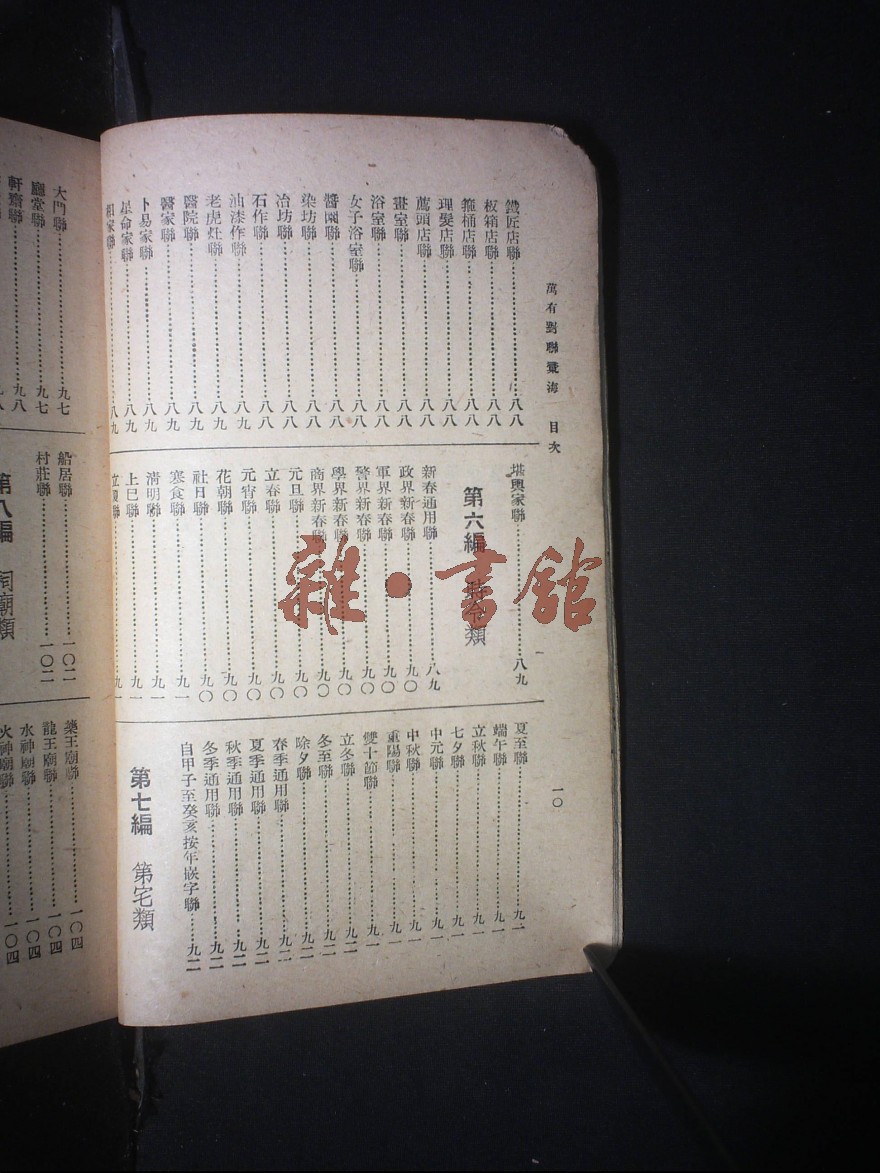 萬有對聯彙海　目次
一〇
鐵匠店聯……八八
板箱店聯……八八
箍桶店聯……八八
理髮店聯……八八
薦頭店聯……八八
畫室聯……八八
浴室聯……八八
女子浴室聯……八八
醬園聯……八八
染坊聯……八八
冶坊聯……八八
石作聯……八八
油漆作聯……八九
老虎灶聯……八九
醫院聯……八九
醫家聯……八九
卜易家聯……八九
星命家聯……八九
相家聯……八九
堪輿家聯……八九
第六編　時令類
新春通用聯……八九
政界新春聯……九〇
軍界新春聯……九〇
警界新春聯……九〇
學界新春聯……九〇
商界新春聯……九〇
元旦聯……九〇
立春聯……九〇
元宵聯……九〇
花朝聯……九〇
社日聯……九〇
寒食聯……九一
清明聯……九一
上巳聯……九一
立夏聯……九一
夏至聯……九一
端午聯……九一
立秋聯……九一
七夕聯……九一
中元聯……九一
中秋聯……九一
重陽聯……九一
雙十節聯……九一
立冬聯……九二
冬至聯……九二
除夕聯……九二
春季通用聯……九二
夏季通用聯……九二
秋季通用聯……九二
冬季通用聯……九二
自甲子至癸亥按年嵌字聯……九二
第七編　第宅類
大門聯……九七
廳堂聯……九七
軒齋聯……九八
船居聯……一〇二
村莊聯……一〇二
第八編　祠廟類
藥王廟聯……一〇四
龍王廟聯……一〇四
水神廟聯……一〇四
火神廟聯……一〇四
雜·書館